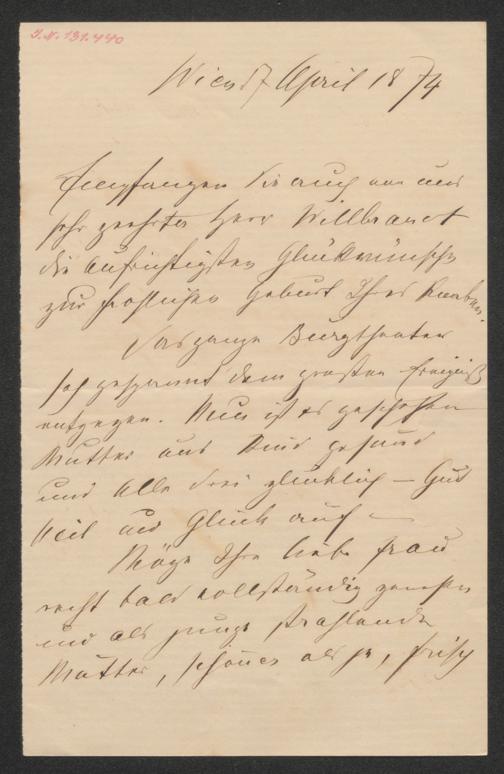 J.N. 131.440
Wien 7 April 1874
Empfangen Sie auch von mir
sehr geehrter Herr Willbrandt
die aufrichtigsten Glückwünsche
zur frohlichen Geburt Ihres Knaben.
Das ganze Burgtheater
sah gespannt dem großen Ereigniß
entgegen. Nun ist es geschehen
Mutter und Kind gesund
und Alle drei glücklich – Gut
Heil und Glück auf –
Möge Ihre liebe Frau
recht bald vollständig genesen
und als junge strahlende
Mutter, schöner als je, frisch